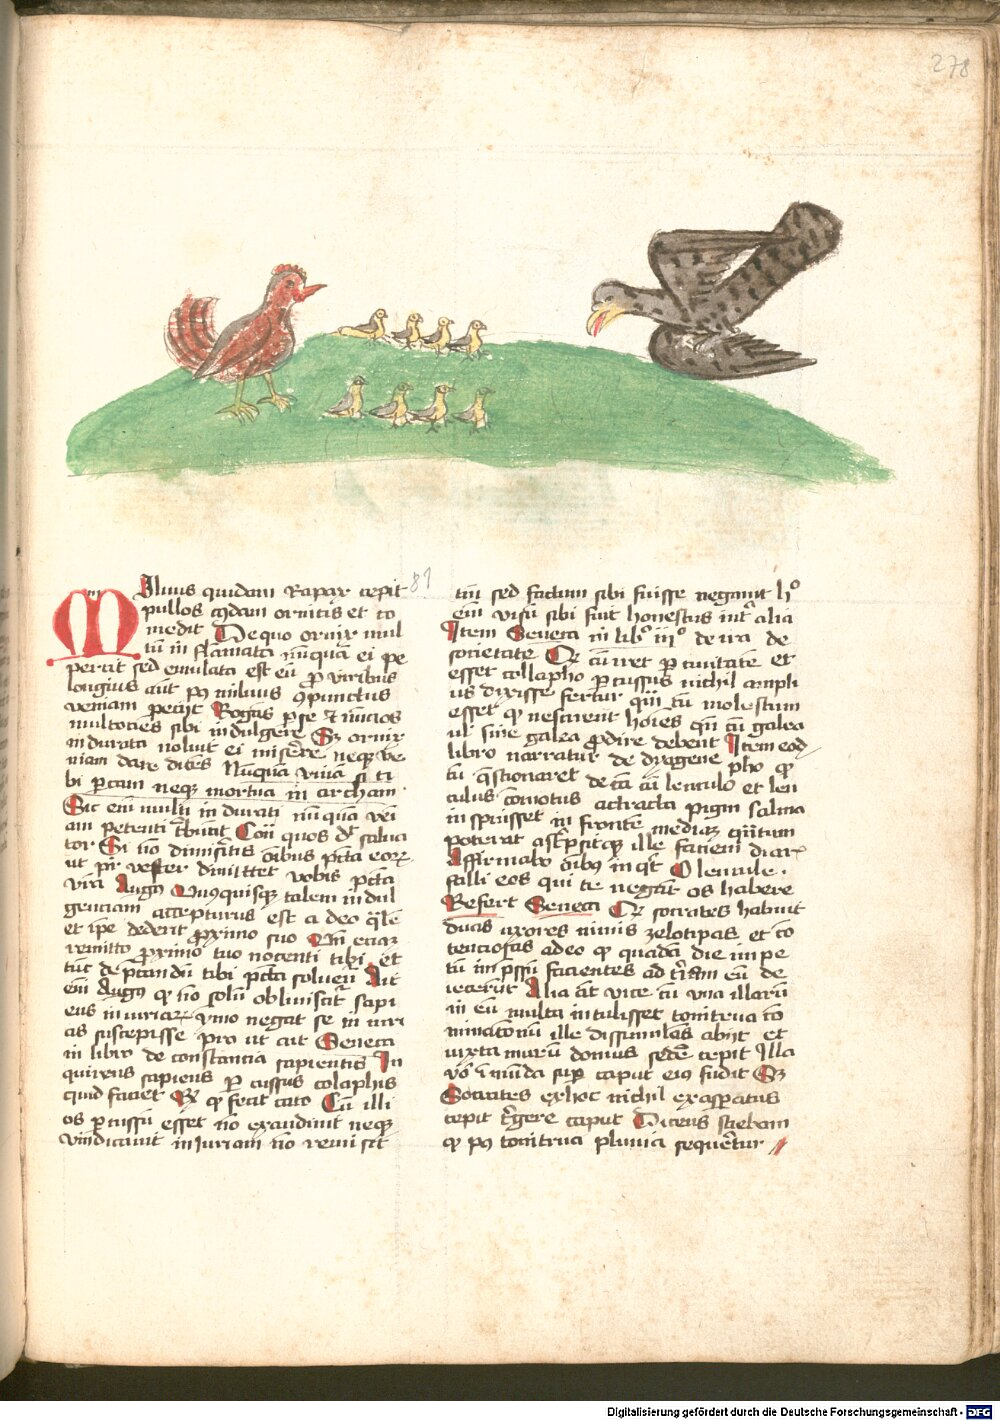 278
Miluus quidam Rapax cepit
pullos cuiusdam ornicis et co
medit De quo ornix mul
tum inflamata nunquam ei pe
percit sed emulata est eum pro viribus
longius aut post miluus compunctus
veniam petiit Rogans per se et nuncios
multocies sibi indulgere Sed ornix
indurata noluit ei miserere neque ve
niam dare dicens Nunquam viva si ti
bi parcam neque mortua in archam
Sic enim multi indurati nunquam veni
am petenti tribuunt Contra quos dicit salva
tor Si non dimiseritis omnibus peccata eorum
ut pater vester dimittet vobis peccata
vestra Augus Unusquisque talem indul
genciam accepturus est a deo qualem
et ipse dederit proximo suo Quando enim
remitto proximo tuo nocenti tibi et
tunc deprecandum tibi peccata solventur Ait
enim Augus quod non solum obliviscitur sapi
ens iniuriarum ymo negat se iniuri
as suscepisse pro ut ait Seneca
in libro de constantia sapientis In
quirens sapiens percussus colaphis
quid faciet Respondet quod fecit cato Cum illi
os percussum esset non exanduit neque
vindicavit iniuriam non remisit
81
tum sed factum sibi fuisse negavit hoc
enim visum sibi fuit honestius inter alia
Item Seneca in libro iiio de ira de
societate Quod cum iret per civitatem et
esset collapho percussus nichil ampli
us dixisse fertur quam tum molestum
esset quod nescirent homines quando cum galea
vel sine galea prodire debent Item eodem
libro narratur de dyogene pho quod
cum questionaret de causa cum lenculo et len
culus comotus attracta pigni saliua
inspuisset in frontem mediam quantum
poterat abstersitque ille faciem dicens
Affirmabo omnibus inquit O lencule
falli eos qui te negant os habere
Refert Seneca Quod socrates habuit
duas uxores nimis zelotipas et co
tenciosas adeo quod quadam die impe
tum in ipsum facientes ad terram eum de
iecerunt Alia autem vice cum una illarum
in eum multa intulisset tonitrua co
minationum ille dissimulans abiit et
iuxta murum domus sedere cepit Illa
vero immunda super caput eius fudit Sed
Socrates ex hoc nichil exasperatus
cepit tergere caput Dicens sciebam
quod post tonitrua pluvia sequeretur
Digitalisierung gefördert durch die Deutsche Forschungsgemeinschaft - DFG